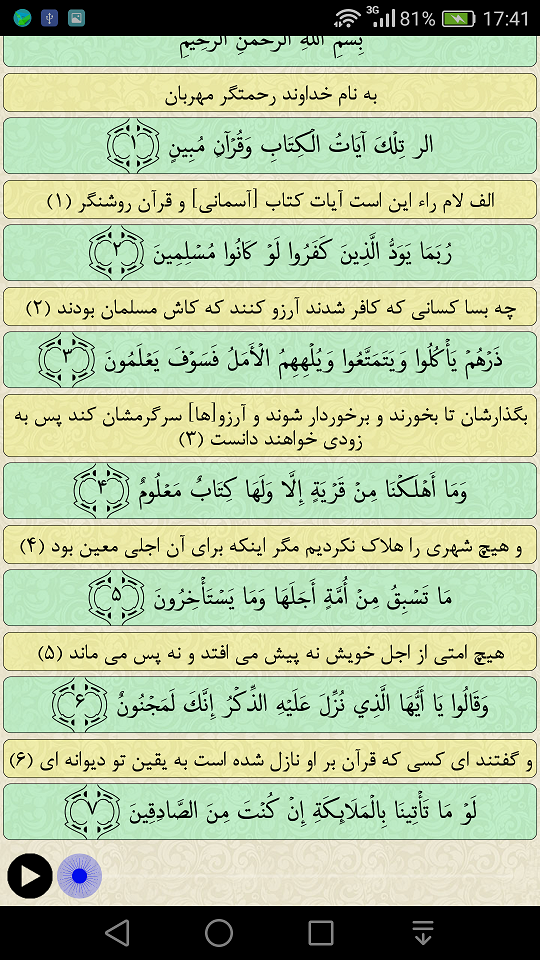 3G 81% 17:41
بِسْمِ اللَّهِ الرَّحْمَنِ الرَّحِيمِ
به نام خداوند رحمتگر مهربان
الر تِلْكَ آيَاتُ الْكِتَابِ وَقُرْآنٍ مُبِينٍ ۱
الف لام راء این است آیات کتاب [آسمانی] و قرآن روشنگر (۱)
رُبَمَا يَوَدُّ الَّذِينَ كَفَرُوا لَوْ كَانُوا مُسْلِمِينَ ۲
چه بسا کسانی که کافر شدند آرزو کنند که کاش مسلمان بودند (۲)
ذَرْهُمْ يَأْكُلُوا وَيَتَمَتَّعُوا وَيُلْهِهِمُ الْأَمَلُ فَسَوْفَ يَعْلَمُونَ ۳
بگذارشان تا بخورند و برخوردار شوند و آرزو[ها] سرگرمشان کند پس به
زودی خواهند دانست (۳)
وَمَا أَهْلَكْنَا مِنْ قَرْيَةٍ إِلَّا وَلَهَا كِتَابٌ مَعْلُومٌ ۴
و هیچ شهری را هلاک نکردیم مگر اینکه برای آن اجلی معین بود (۴)
مَا تَسْبِقُ مِنْ أُمَّةٍ أَجَلَهَا وَمَا يَسْتَأْخِرُونَ ۵
هیچ امتی از اجل خویش نه پیش می افتد و نه پس می ماند (۵)
وَقَالُوا يَا أَيُّهَا الَّذِي نُزِّلَ عَلَيْهِ الذِّكْرُ إِنَّكَ لَمَجْنُونٌ ۶
و گفتند ای کسی که قرآن بر او نازل شده است به یقین تو دیوانه ای (۶)
لَوْ مَا تَأْتِينَا بِالْمَلَائِكَةِ إِنْ كُنْتَ مِنَ الصَّادِقِينَ ۷